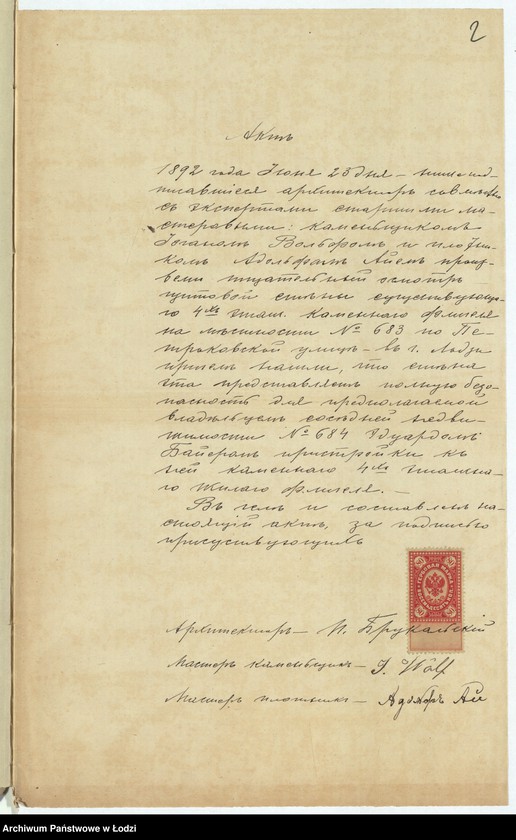 2
Актъ
1892 года Іюня 25 дня – нижепод-
писавшіеся архитекторъ совмѣстно
съ экспертами старшими ма-
стеровыми: каменьщикомъ
Іоганомъ Вольфомъ и плотни-
комъ Адольфомъ Айемъ произ-
вели тщательный осмотръ
щитовой стѣны существующа-
го 4хъ этаж. каменнаго флигеля
на мѣстности № 683 по Пе-
троковской улицѣ – въ г. Лодзи
причемъ нашли, что стѣна
эта представляетъ полную безо-
пасность для предполагаемой
владѣльцемъ сосѣдней недви-
жимости № 684 Эдуардомъ
Байеромъ пристройки къ
ней каменнаго 4хъ этажна-
го жилаго флигеля. –
Въ чемъ и составленъ на-
стоящій актъ, за подписью
присутствующихъ
Архитекторъ – И. Брукальскій
Мастеръ каменьщикъ – J. Wolf
Мастеръ плотникъ – Адольфъ Ай
80 80
80 80
Archiwum Państwowe w Łodzi